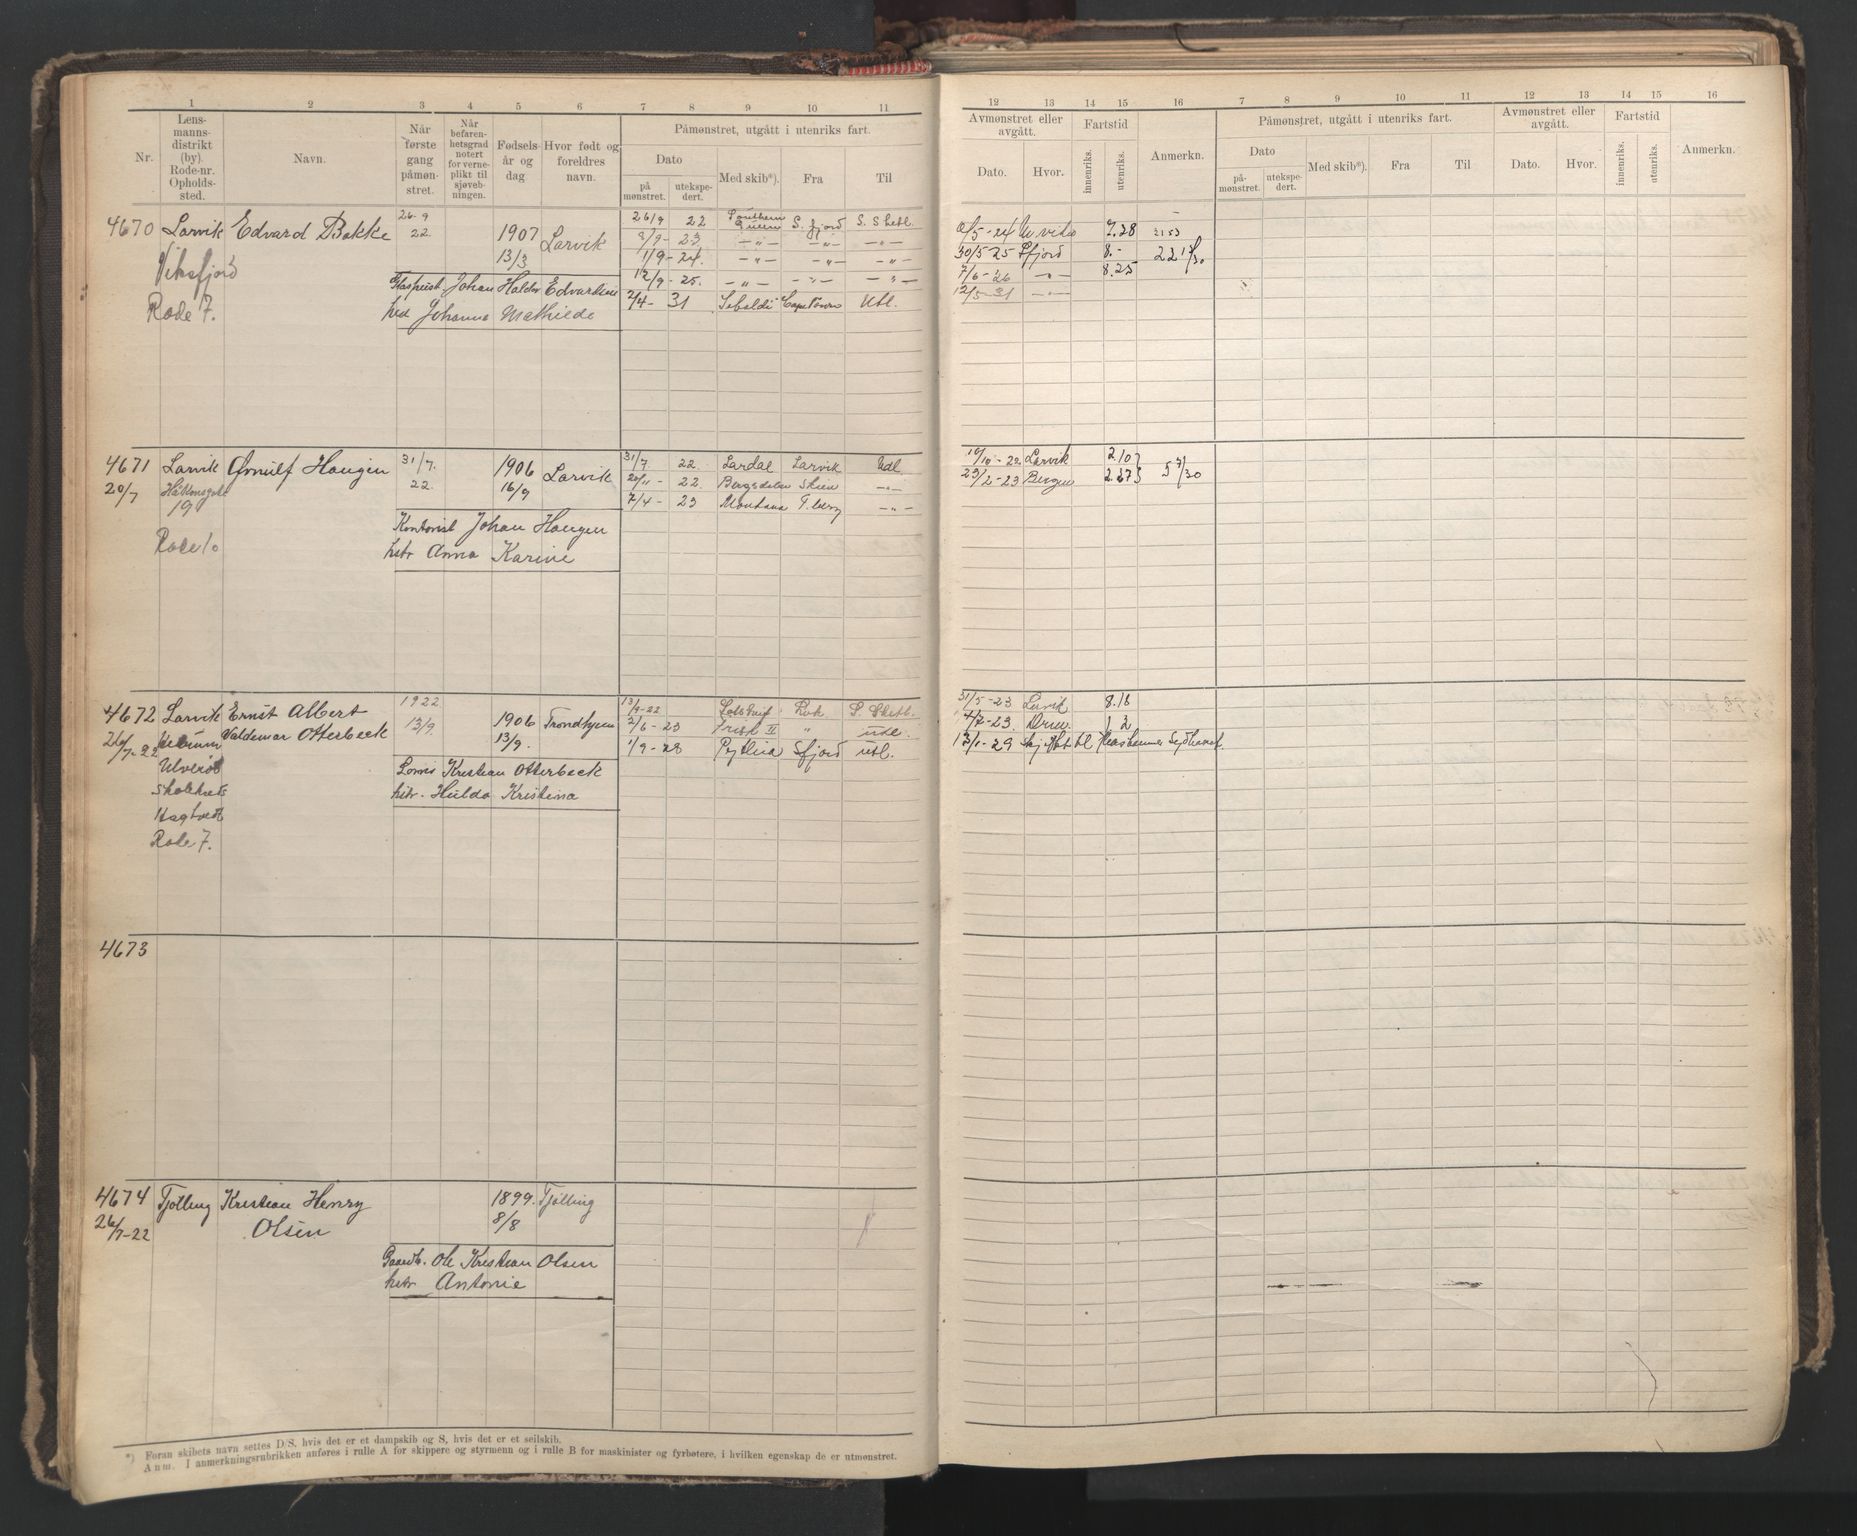 1 2 3 4 5 6 7 8 9 10 11
Nr. Lensmannsdistrikt (by). Rode-nr. Opholdssted. Navn. Når første gang påmønstret. Når befarenhetsgrad notert for verneplikt til sjøvebningen. Fødselsår og dag Hvor født og foreldres navn. Påmønstret, utgått i utenriks fart.
Dato Med skib*). Fra Til
på mønstret. utekspedert.
12 13 14 15 16 7 8 9 10 11 12 13 14 15 16
Avmønstret eller avgått. Fartstid Anmerkn. Påmønstret, utgått i utenriks fart. Avmønstret eller avgått. Fartstid Anmerkn.
Dato. Hvor. innenriks. utenriks. Dato Med skib*). Fra Til Dato. Hvor. innenriks. utenriks.
påmønstret. utekspedert.
4670 Larvik Edvard Bakke 26-9 22. 1907 13/3 Larvik
Viksfjord
Rode 7.
Johan Haldor Edvardsen
Johanna Mathilde
26/9 22 Southern Queen S. fjord S. Shetl.
8/9-23. -"- -"- -"-
1/9-24. -"- -"- -"-
12/9-25. -"- -"- -"-
2/4-31 Capetown Utl.
/5-24 7.28 2153
30/5-25 Sfjord 8.-
7/6-26 -"- 8.25
12/5-31 -"-
4671 Larvik Ørnulf Haugen 31/7. 22. 1906 16/9 Larvik
20/7 Håkonsgate 19
Rode 10
Kontorist Johan Haugen
hstr Anna Karine
31/7 22. Lardal Larvik Udl.
20/11-22. Bergsdalen Skien -"-
7/4-23 Montana T.berg -"-
10/10-22 Larvik 2.10
23/2-23 Bergen
4672 Larvik Ernst Albert 1922 13/9. 1906 13/9. Trondhjem
26/7-22 Valdemar Otterbeck
Hagtvedt
Rode 7.
Kristian Otterbeck
hstr. Hulda Kristina
13/9-22 S. Shetl.
2/6-23 II " utl.
1/9-28 Pythia Sfjord utl.
31/5-23 Larvik 8.18
4/7-23.
13/1-29
4673
4674 Tjølling Kristian Henry 1899. 8/8 Tjølling
26/7-22 Olsen
Gaardb. Ole Kristian Olsen
hstr Antonie
*) Foran skibets navn settes D/S, hvis det er et dampskib og S, hvis det er et seilskib.
Anm. I anmerkningsrubrikken anføres i rulle A for skippere og styrmenn og i rulle B for maskinister og fyrbøtere, i hvilken egenskap de er utmønstret.